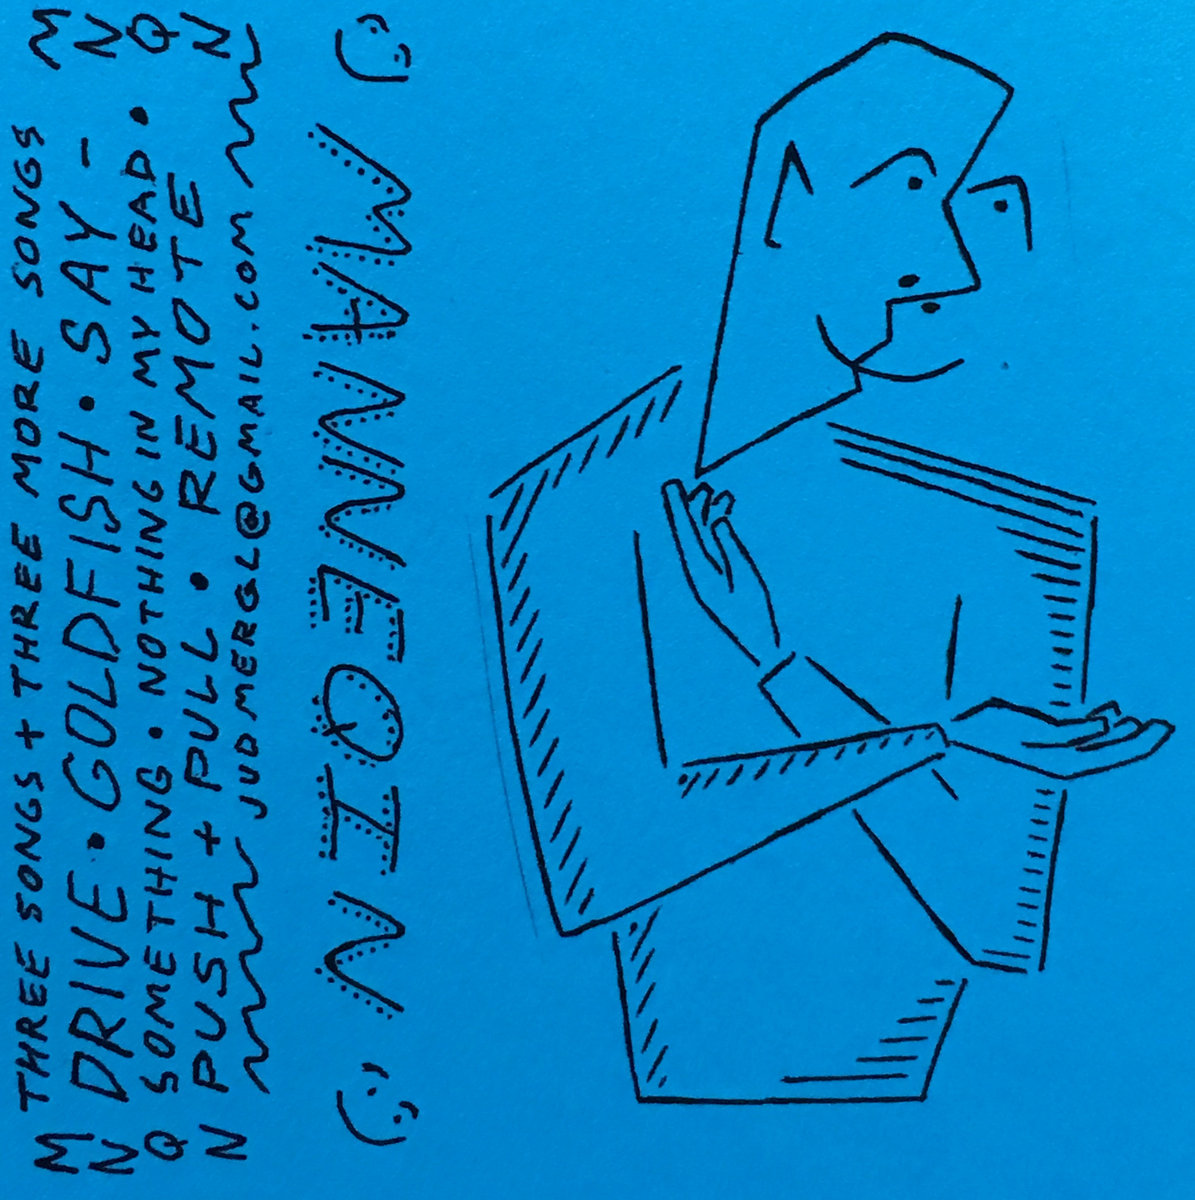 M THREE SONGS + THREE MORE SONGS M
N DRIVE • GOLDFISH • SAY - N
Q SOMETHING • NOTHING IN MY HEAD • Q
N PUSH + PULL • REMOTE N
JUDMERGL@GMAIL.COM
MANNEQIN